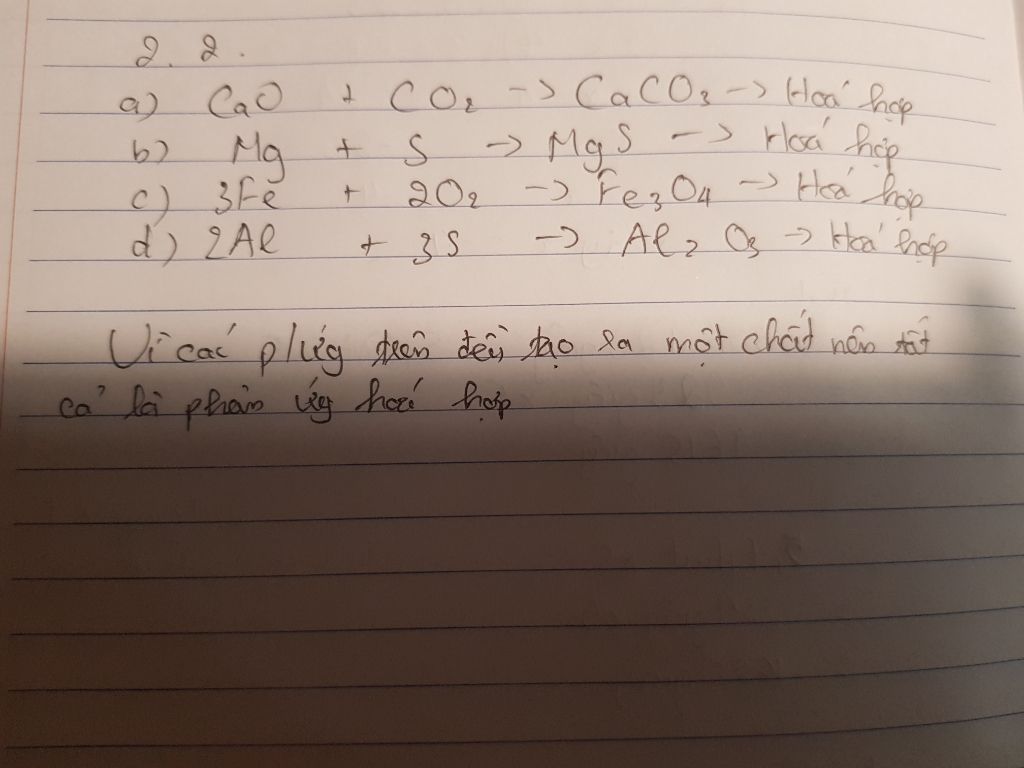 2.2.
a) CaO + CO₂ -> CaCO₃ -> Hoá hợp
b) Mg + S -> MgS -> Hoá hợp
c) 3Fe + 2O₂ -> Fe₃O₄ -> Hoá hợp
d) 2Al + 3S -> Al₂O₃ -> Hoá hợp
Vì các p/ứg trên đều tạo ra một chất nên tất
cả là phản ứg hoá hợp